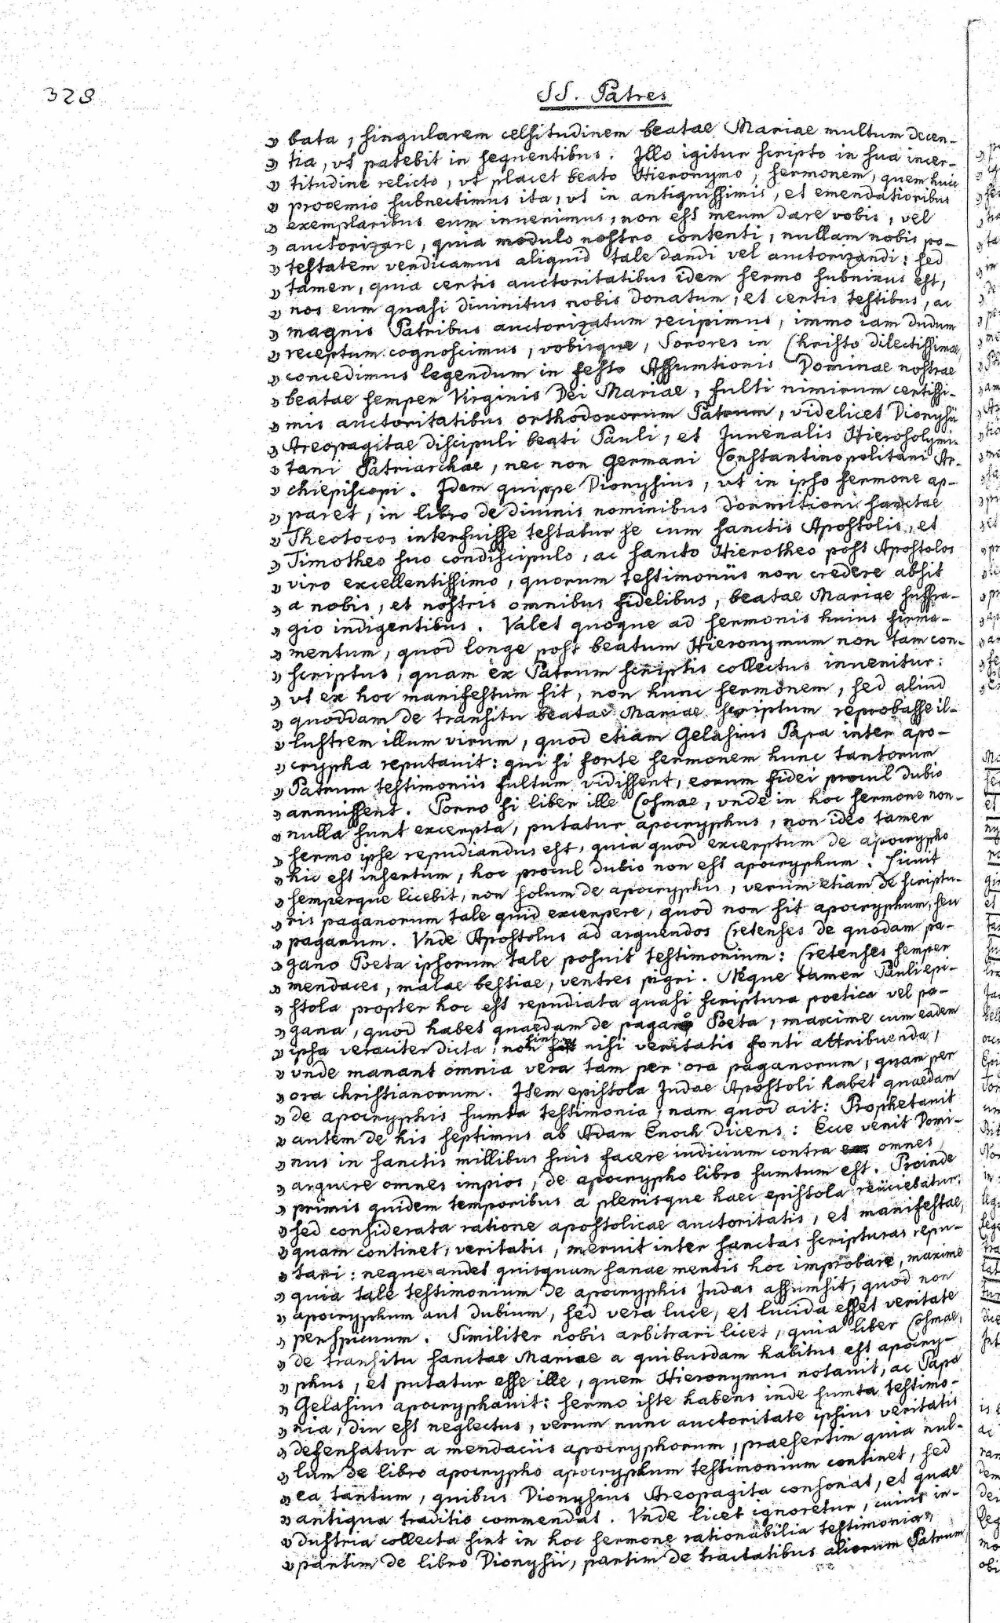 328
SS. Patres
„ bata, singularem celsitudinem beatae Mariae multum decen-
„ tia, vt patebit in sequentibus. Illo igitur scripto in sua incer-
„ titudine relicto, vt placet beato Hieronymo, sermonem, quem huic
„ prooemio subnectimus ita, vt in antiquissimis, et emendatioribus
„ exemplaribus eum inuenimus, non est meum dare vobis, vel
„ auctorizare, quia modulo nostro contenti, nullam nobis po-
„ testatem vendicamus aliquid tale dandi vel auctorizandi: sed
„ tamen, quia certis auctoritatibus idem sermo subnixus est,
„ nos eum quasi diuinitus nobis donatum, et certis testibus, ac
„ magnis Patribus auctorizatum recipimus, immo iam dudum
„ receptum cognoscimus, vobisque, Sorores in Christo dilectissimae,
„ concedimus legendum in festo Assumtionis Dominae nostrae
„ beatae semper Virginis Dei Mariae, fulti nimirum certissi-
„ mis auctoritatibus orthodoxorum Patrum, videlicet Dionysii
„ Areopagitae discipuli beati Pauli, et Iuuenalis Hierosolymi-
„ tani Patriarchae, nec non Germani Constantinopolitani Ar-
„ chiepiscopi. Idem quippe Dionysius, vt in ipso sermone ap-
„ paret, in libro de diuinis nominibus dormitioni sanctae
„ Theotocos interfuisse testatur se cum sanctis Apostolis, et
„ Timotheo suo condiscipulo, ac sancto Hierotheo post Apostolos
„ viro excellentissimo, quorum testimoniis non credere absit
„ a nobis, et nostris omnibus fidelibus, beatae Mariae suffra-
„ gio indigentibus. Valet quoque ad sermonis huius firma-
„ mentum, quod longe post beatum Hieronymum non tam con-
„ scriptus, quam ex Patrum scriptis collectus inuenitur:
„ vt ex hoc manifestum sit, non hunc sermonem, sed aliud
„ quoddam de transitu beatae Mariae scriptum reprobasse il-
„ lustrem illum virum, quod etiam Gelasius Papa inter apo-
„ crypha reputauit: qui si forte sermonem hunc tantorum
„ Patrum testimoniis fultum vidissent, eorum fidei procul dubio
„ annuissent. Porro si liber ille Cosmae, vnde in hoc sermone non-
„ nulla sunt excerpta, putatur apocryphus, non ideo tamen
„ sermo ipse repudiandus est, quia quod excerptum de apocrypho
„ hic est insertum, hoc procul dubio non est apocryphum. Sicuit
„ semperque licebit, non solum de apocryphis, verum etiam de scriptu-
„ ris paganorum tale quid excerpere, quod non sit apocryphum, seu
„ paganum. Vnde Apostolus ad arguendos Cretenses de quodam pa-
„ gano Poeta ipsorum tale posuit testimonium: Cretenses semper
„ mendaces, malae bestiae, ventres pigri. Neque tamen Pauli epi-
„ stola propter hoc est repudiata quasi scriptura poetica vel pa-
„ gana, quod habet quaedam de pagano Poeta, maxime cum eadem
„ ipsa veraciter dicta, non sint nisi veritatis fonti attribuenda,
„ vnde manant omnia vera tam per ora paganorum, quam per
„ ora christianorum. Item epistola Iudae Apostoli habet quaedam
„ de apocryphis sumta testimonia, nam quod ait: Prophetauit
„ autem de his septimus ab Adam Enoch dicens: Ecce venit Domi-
„ nus in sanctis millibus suis facere iudicium contra omnes,
„ arguere omnes impios, de apocrypho libro sumtum est. Proinde
„ primis quidem temporibus a plerisque haec epistola reiiciebatur:
„ sed considerata ratione apostolicae auctoritatis, et manifestae,
„ quam continet, veritatis, meruit inter sanctas scripturas repu-
„ tari: neque audet quisquam sanae mentis hoc improbare, maxime
„ quia tale testimonium de apocryphis Iudas assumsit, quod non
„ apocryphum aut dubium, sed vera luce, et lucida esset veritate
„ perspicuum. Similiter nobis arbitrari licet, quia liber Cosmae,
„ de transitu sanctae Mariae a quibusdam habitus est apocry-
„ phus, et putatur esse ille, quem Hieronymus notauit, ac Papa
„ Gelasius apocryphauit: sermo iste habens inde sumta testimo-
„ nia, diu est neglectus, verum nunc auctoritate ipsius veritatis
„ defensatur a mendaciis apocryphorum, praesertim quia nul-
„ lum de libro apocrypho apocryphum testimonium continet, sed
„ ea tantum, quibus Dionysius Areopagita consonat, et quae
„ antiqua traditio commendat. Vnde licet ignoretur, cuius in-
„ dustria collecta sint in hoc sermone rationabilia testimonia,
„ partim de libro Dionysii, partim de tractatibus aliorum Patrum